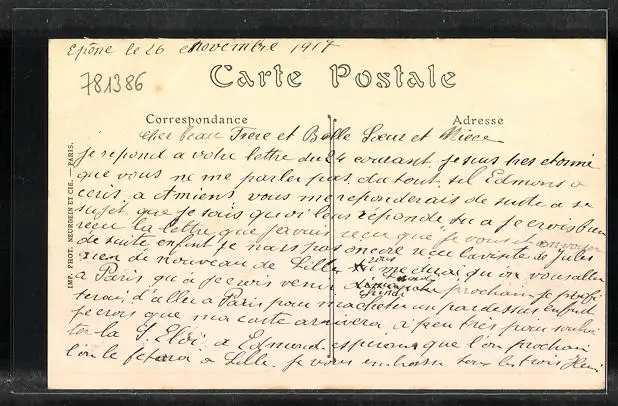 Epône le 26 Novembre 1917
781386
Carte Postale
Correspondance
Adresse
cher beau Frere et Belle Sœur et Niece
je repond a votre lettre du 24 courant, je suis tres etonné
que vous ne me parler pas du tout, si Edmond a
ecris a Amiens vous me reponderais de suite a se
sujet, que je sais qu'il leur réponde, su a je crois bien
recu la lettre que j'avais recu que je vous et envoyer
de suite enfin je nars pas encore recu la visite de Jules
rien de nouveau de Lille, vous me direz qui on vous aller
a Paris qu'a je crois venir dimanche prochain je profi
terais d'aller a Paris pour m'acheter un pardessus enfin
je crois que ma carte arrivera, a peu tres pour souhai
ter la St Eloi a Edmond esperons que l'an prochain
l'on le fetera a Lille. je vous embrasse tous les trois Henri
IMP. PHOT. NEURDEIN ET CIE. — PARIS.